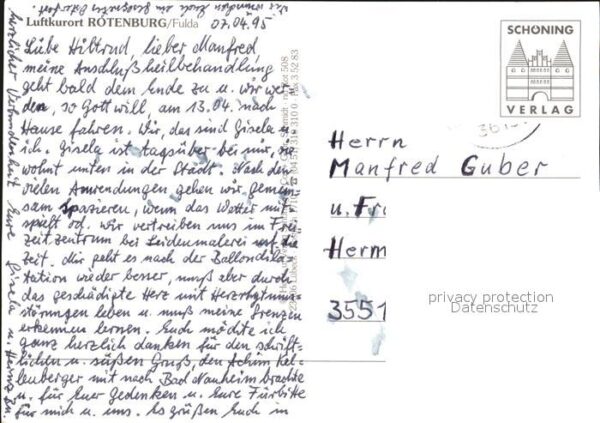 Luftkurort ROTENBURG/Fulda
07.04.95
Liebe Hiltrud, lieber Manfred
meine Anschlußheilbehandlung
geht bald dem Ende zu u. wir wer
den, so Gott will, am 13.04. nach
Hause fahren. Wir, das sind Gisela u.
ich. Gisela ist tagsüber bei mir, sie
wohnt unten in der Stadt. Nach den
vielen Anwendungen gehen wir gemein-
sam spazieren, wenn das Wetter mit
spielt od. wir vertreiben uns im Frei
zeitzentrum bei Seidenmalerei die
Zeit. Mir geht es nach der Ballondila-
tation wieder besser, muß aber durch
das geschädigte Herz mit Herzrhytmus-
störungen leben u. muß meine Grenzen
erkennen lernen. Euch möchte ich
ganz herzlich danken für den schrift-
lichen u. süßen Gruß, den Achim Kel-
lenberger mit nach Bad Nauheim brachte
u. für Euer Gedenken u. Eure Fürbitte
für mich u. uns. Es grüßen Euch in
herzlicher Verbundenheit Eure Gisela u.
Wir wünschen Euch ein gesegnetes Osterfest
SCHÖNING
VERLAG
Herrn
Manfred Guber
u. Fr
Herm
3551
privacy protection
Datenschutz